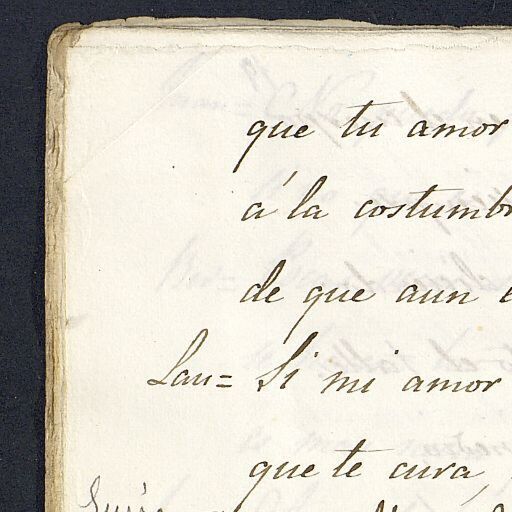 que tu amor
á la costumbr
de que aun
Lau= Si mi amor
que te cura,